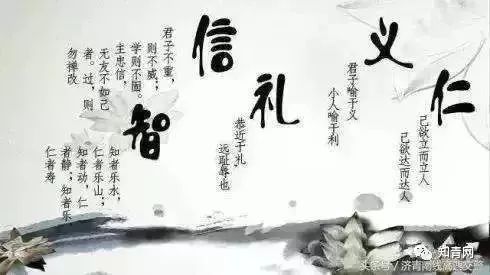 仁
己欲立而立人
己欲达而达人
义
君子喻于义
小人喻于利
礼
恭近于礼
远耻辱也
信
君子不重，
则不威；
学则不固。
主忠信，
无友不如己
者。过，则
勿禅改
智
知者乐水，
仁者乐山；
知者动，仁
者静；知者乐
仁者寿
知青网
头条号